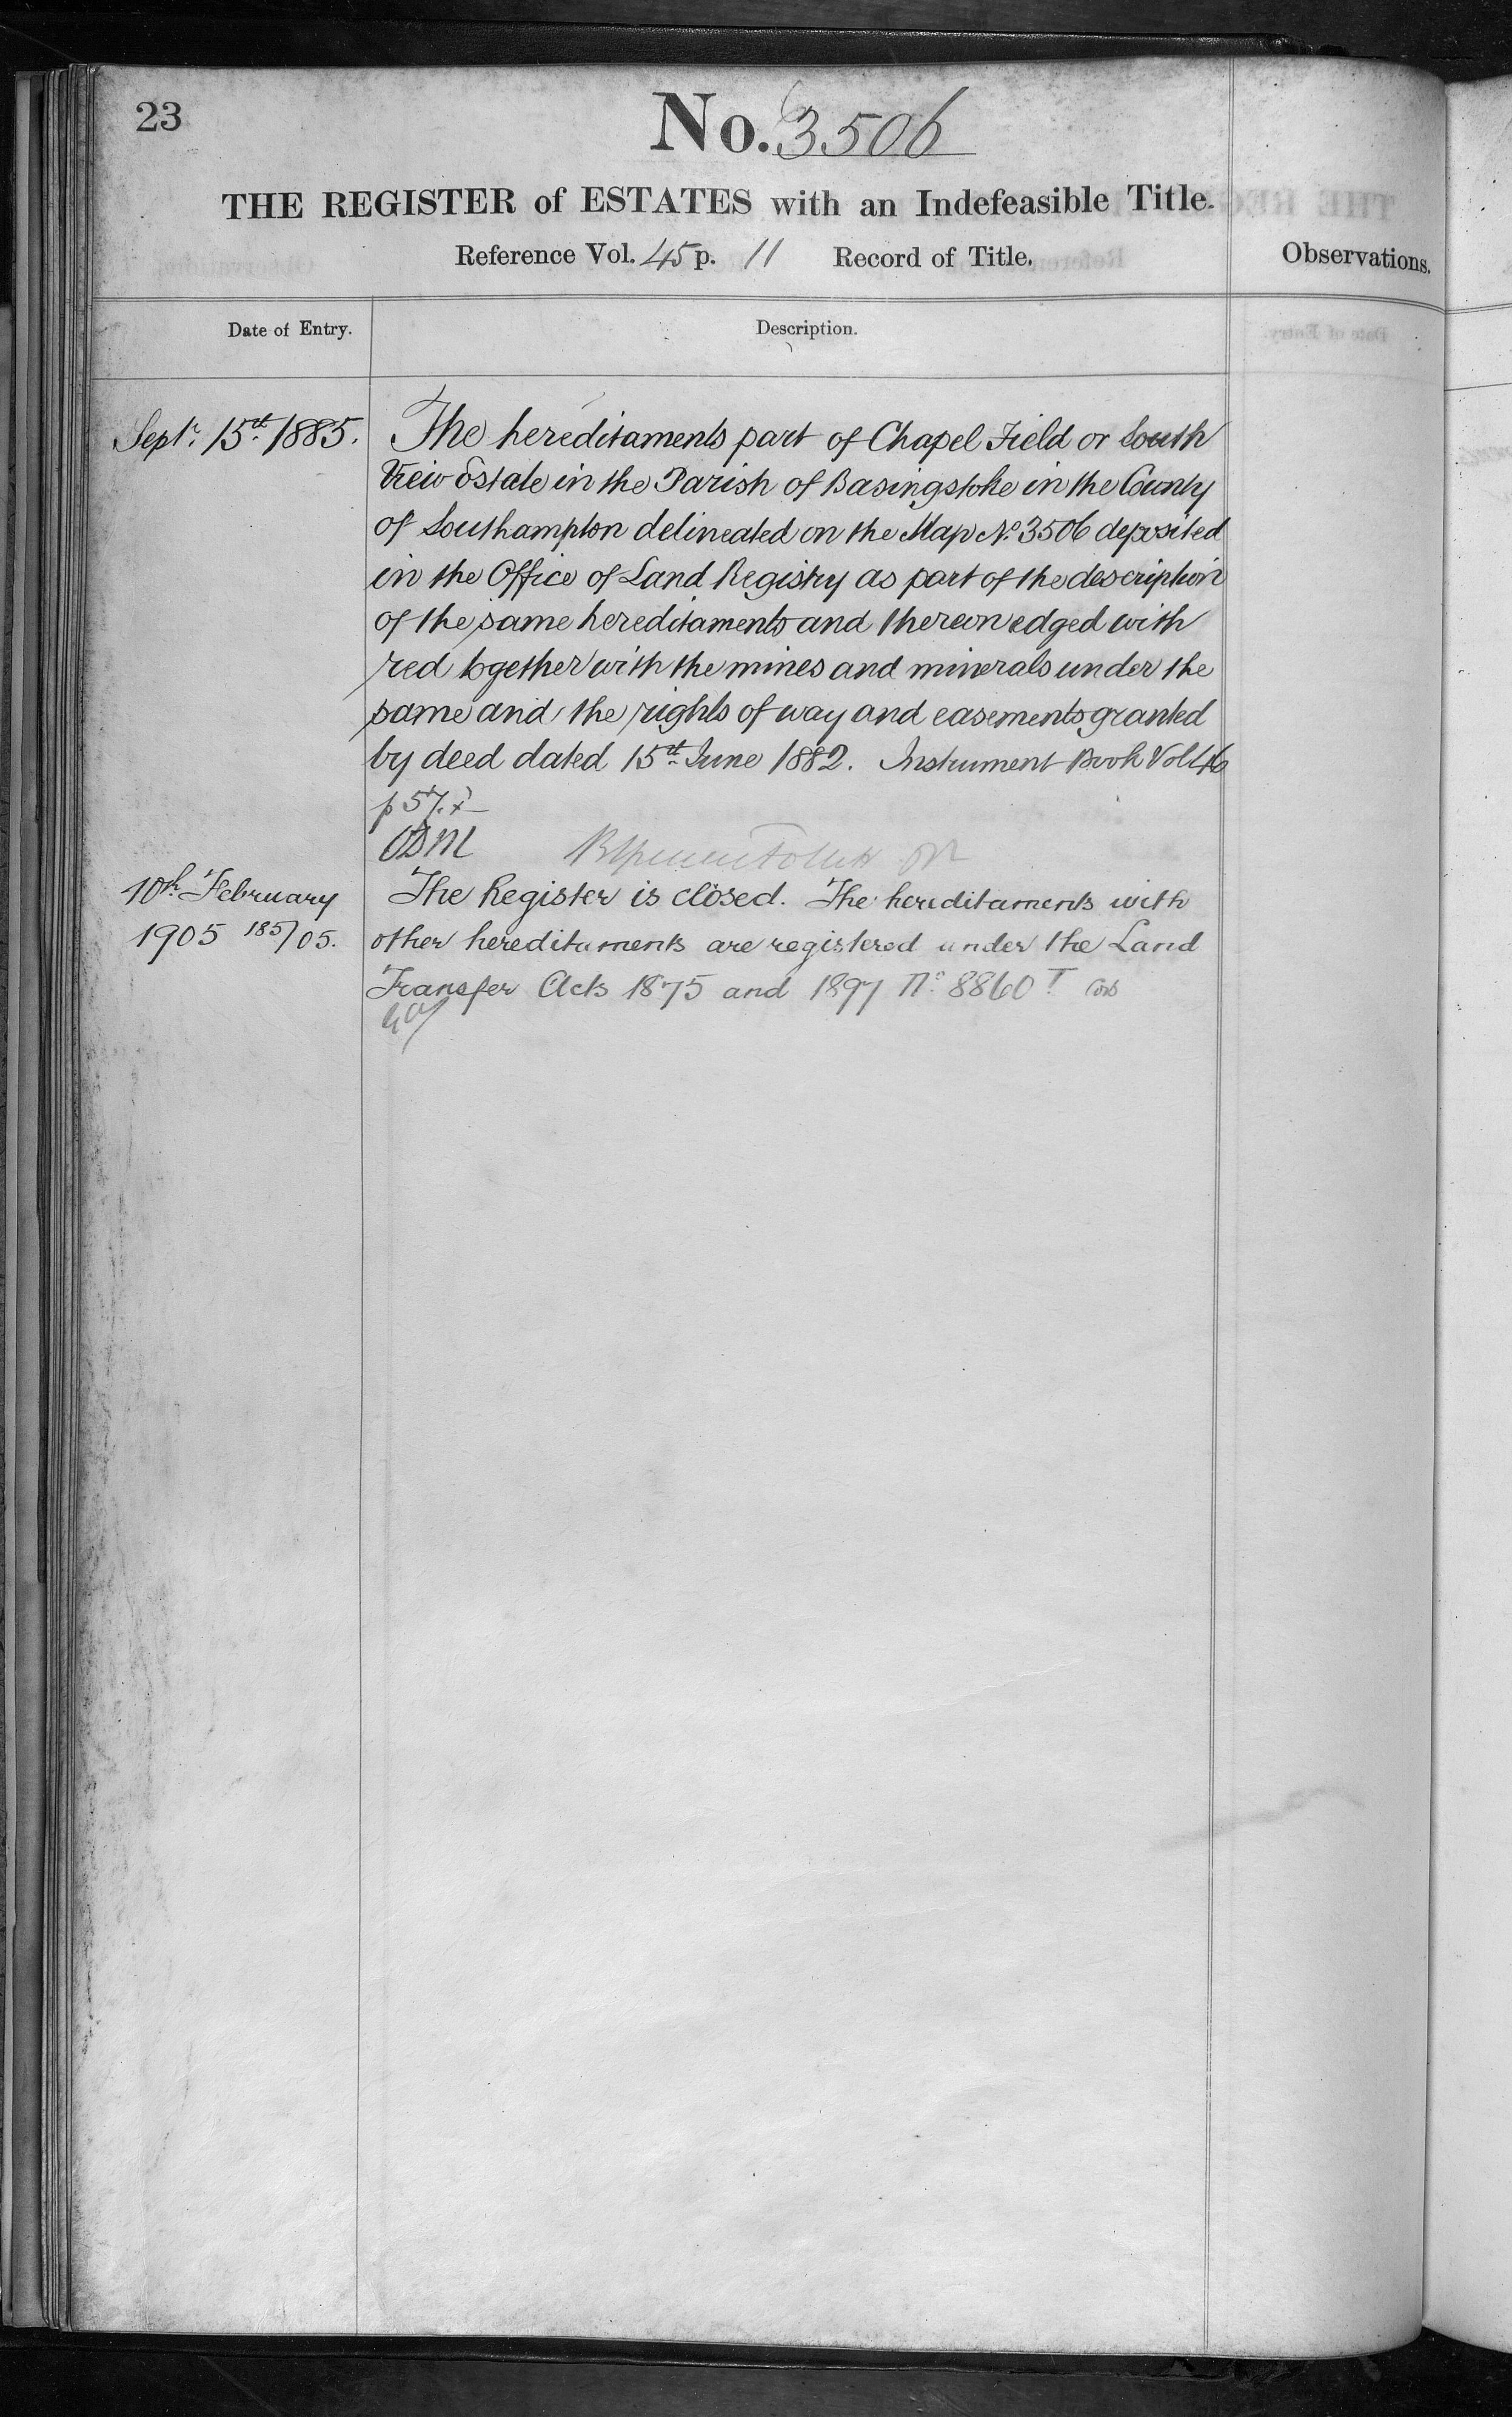 23
No. 3506
THE REGISTER of ESTATES with an Indefeasible Title.
Reference Vol. 45 p. 11 Record of Title.
Observations.
Date of Entry.
Description.
Sept. 15th 1885.
The hereditaments part of Chapel Field or South
View Estate in the Parish of Basingstoke in the County
of Southampton delineated on the Map No. 3506 deposited
in the Office of Land Registry as part of the description
of the same hereditaments and thereon edged with
red together with the mines and minerals under the
same and the rights of way and easements granted
by deed dated 15th June 1882. Instrument Book Vol 46
p 57.
10th February
1905 185/05.
The Register is closed. The hereditaments with
other hereditaments are registered under the Land
Transfer Acts 1875 and 1897 No. 8860